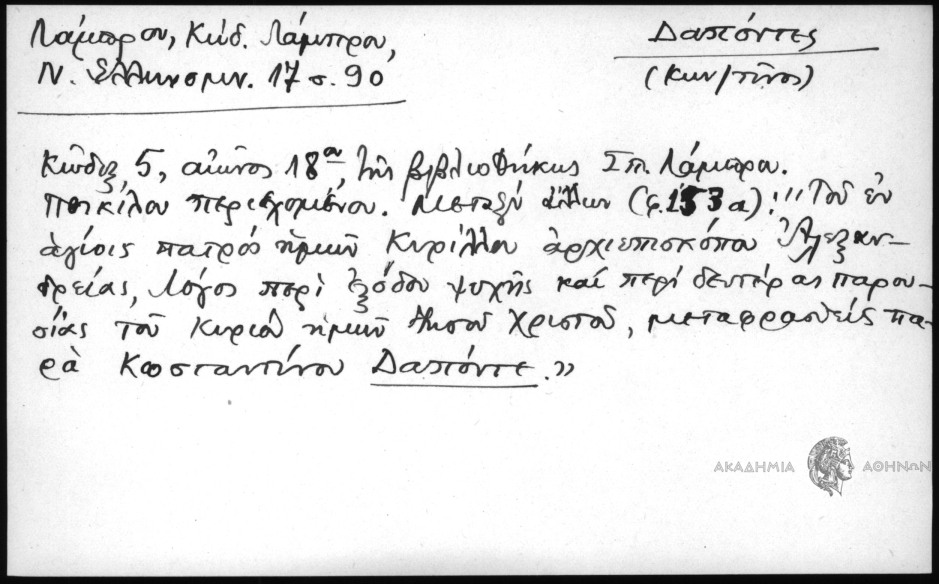 Λάμπρου, Κώδ. Λάμπρου,
Ν. Ἑλληνομν. 17 σ. 90
Δαπόντες
(Κων/τῖνος)
Κῶδιξ 5, αἰῶνος 18ου, τῆς βιβλιοθήκης Σπ. Λάμπρου.
Ποικίλου περιεχομένου. Μεταξὺ ἄλλων (φ. 153α): "Τοῦ ἐν
ἁγίοις πατρός ἡμῶν Κυρίλλου ἀρχιεπισκόπου Ἀλεξαν-
δρείας, λόγος περὶ ἐξόδου ψυχῆς καί περί δευτέρας παρου-
σίας τοῦ Κυρίου ἡμῶν Ἰησοῦ Χριστοῦ, μεταφρασθείς πα-
ρὰ Κωσταντίνου Δαπόντε."
ΑΚΑΔΗΜΙΑ ΑΘΗΝΩΝ